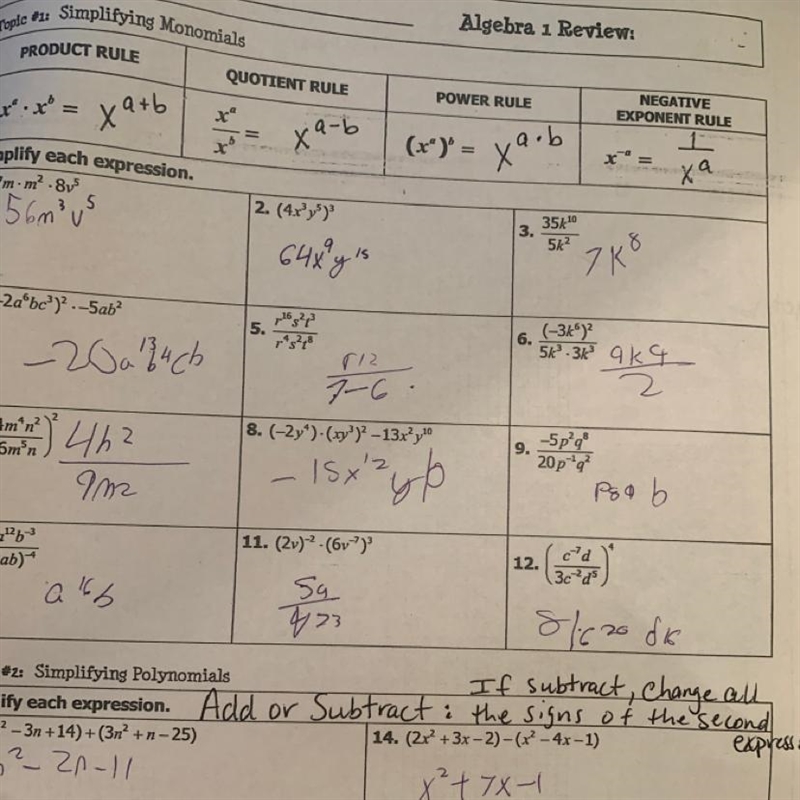 Topic #1: Simplifying Monomials
Algebra 1 Review:
PRODUCT RULE
QUOTIENT RULE
POWER RULE
NEGATIVE EXPONENT RULE
xᵃ · xᵇ = x^(a+b)
xᵃ/xᵇ = x^(a-b)
(xᵃ)ᵇ = x^(a·b)
x⁻ᵃ = 1/xᵃ
plify each expression.
7m · m² · 8v⁵
56m³v⁵
2. (4x³y⁵)³
64x⁹y¹⁵
3. 35k¹⁰/5k²
7k⁸
-2a⁶bc³)² · -5ab²
5. r¹⁶s²t³/r⁴s²t⁸
6. (-3k⁶)²/5k³ · 3k³
m⁴n²/6m⁵n)²
4n²/9m2
8. (-2y⁴) · (xy³)² - 13x²y¹⁰
9. -5p²q⁸/20p⁻¹q²
¹²b⁻³/ab)⁻⁴
a¹⁶b
11. (2v)⁻² · (6v⁻⁷)³
12. (c⁻⁷d/3c⁻²d⁵)⁴
#2: Simplifying Polynomials
ify each expression.
Add or Subtract: If subtract, change all the signs of the second express
² - 3n + 14) + (3n² + n - 25)
² - 2n - 11
14. (2x² + 3x - 2) - (x² - 4x - 1)
x² + 7x - 1